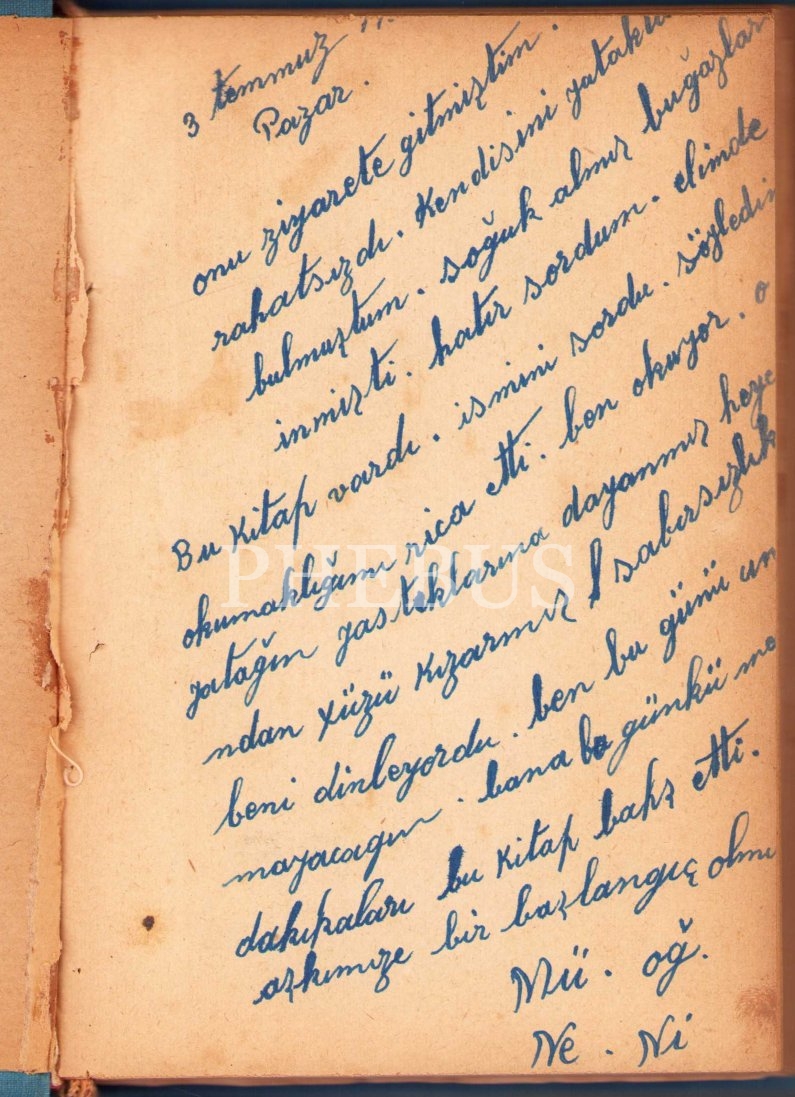 3 temmuz
Pazar.
onu ziyarete gitmiştim.
rahatsızdı. Kendisini yatakta
bulmuştum. soğuk almış buğazlar
inmişti. hatır sordum. elimde
Bu kitap vardı. ismini sordu. söyledim
okumaklığımı rica etti. ben okuyor. o
yatağın yastıklarına dayanmış heye
ndan yüzü kızarmış sabırsızlık
beni dinleyordu. ben bu günü un
mayacagım. bana bu günkü
dakıkaları bu kitap bahş etti.
aşkımıze bir başlangıç olmu
Mü. oğ.
Ne. Ni
PHEBUS